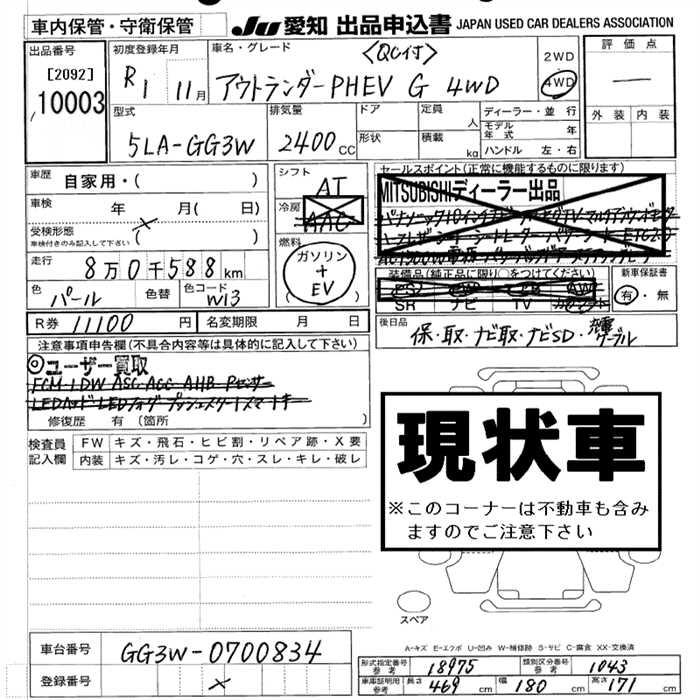 車内保管・守衛保管
JU 愛知 出品申込書 JAPAN USED CAR DEALERS ASSOCIATION
出品番号
[2092]
10003
初度登録年月
R1 11月
車名・グレード
〈QC付〉
アウトランダーPHEV G 4WD
2WD
4WD
評価点
外装 内装
型式
5LA-GG3W
排気量
2400cc
ドア
形状
定員 人
積載 kg
ディーラー・並行
モデル年式 年
ハンドル 左・右
車歴 自家用・( )
車検 年 月( 日)
受検形態
車検付きのみ記入して下さい ( )
走行 8万0千588km
色 パール 色替 色コード W13
シフト AT
冷房 AAC
燃料
ガソリン
+
EV
( )
セールスポイント(正常に機能するものに限ります)
MITSUBISHIディーラー出品
装備品(純正品に限り○をつけてください)
SR ナビ TV
AW
新車保証書
有・無
R券 11100円 名変期限 月 日
後日品
保・取・ナビ取・ナビSD・ケーブル
注意事項申告欄(不具合内容等は具体的に記入して下さい)
◎ユーザー買取
FCM LDW ASC ACC AHB Pセンサー
LEDヘッド LEDフォグ プッシュスタート スマートキー
修復歴 有(箇所
検査員記入欄
FW キズ・飛石・ヒビ割・リペア跡・X要
内装 キズ・汚レ・コゲ・穴・スレ・キレ・破レ
現状車
※このコーナーは不動車も含みますのでご注意下さい
スペア
A-キズ E-エクボ U-凹み W-補修跡 S-サビ C-腐食 XX-交換済
車台番号 GG3W-0700834
登録番号
形式指定番号 参考 18975 類別区分番号 参考 1043
車庫証明用 参考 長さ 469cm 幅 180cm 高さ 171cm